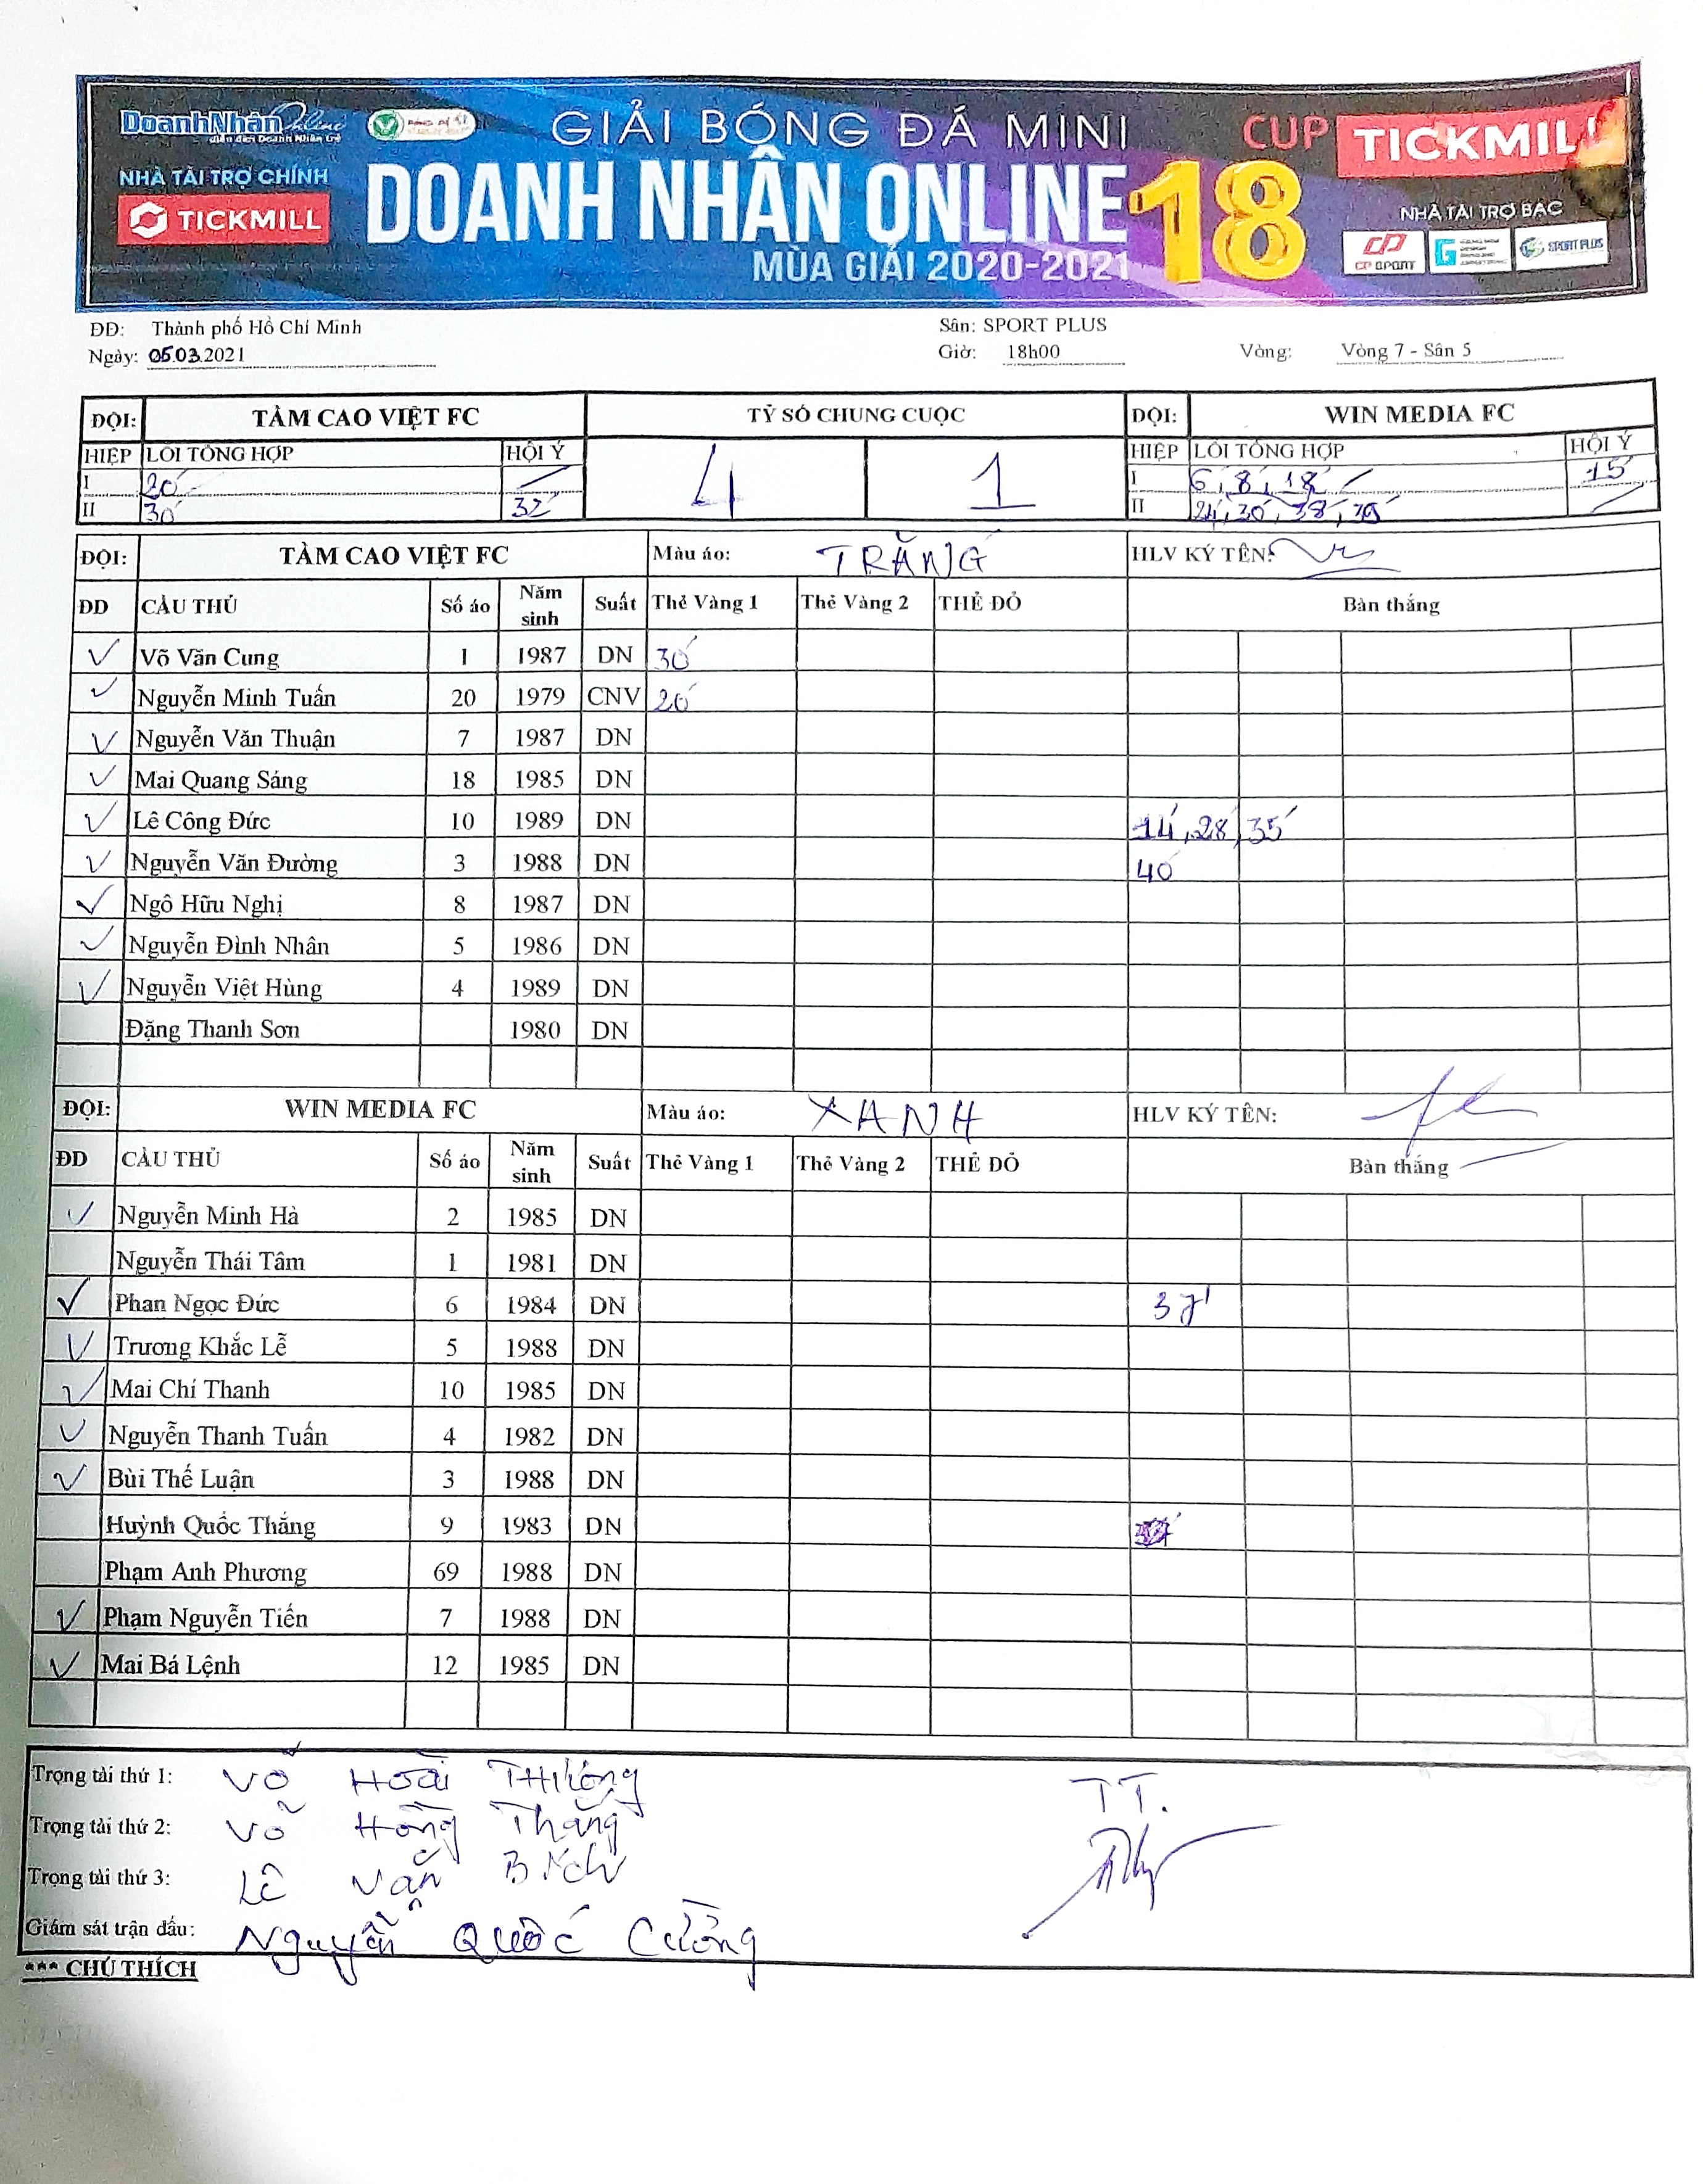 DoanhNhân Online
diễn đàn Doanh Nhân trẻ
NHÀ TÀI TRỢ CHÍNH
TICKMILL
GIẢI BÓNG ĐÁ MINI
DOANH NHÂN ONLINE 18
MÙA GIẢI 2020-2021
CUP TICKMILL
NHÀ TÀI TRỢ BẠC
CP SPORT SPORT PLUS
ĐĐ: Thành phố Hồ Chí Minh Sân: SPORT PLUS
Ngày: 05.03.2021 Giờ: 18h00 Vòng: Vòng 7 - Sân 5
ĐỘI: TẦM CAO VIỆT FC TỶ SỐ CHUNG CUỘC ĐỘI: WIN MEDIA FC
HIỆP LỖI TỔNG HỢP HỘI Ý 4 1 HIỆP LỖI TỔNG HỢP HỘI Ý
I 20' I 6', 8', 18' 15'
II 30' 32' II 24', 30', 38',
ĐỘI: TẦM CAO VIỆT FC Màu áo: TRẮNG HLV KÝ TÊN:
ĐD CẦU THỦ Số áo Năm sinh Suất Thẻ Vàng 1 Thẻ Vàng 2 THẺ ĐỎ Bàn thắng
Võ Văn Cung 1 1987 DN 30'
Nguyễn Minh Tuấn 20 1979 CNV 20'
Nguyễn Văn Thuận 7 1987 DN
Mai Quang Sáng 18 1985 DN
Lê Công Đức 10 1989 DN 14', 28', 35'
Nguyễn Văn Đường 3 1988 DN 40'
Ngô Hữu Nghị 8 1987 DN
Nguyễn Đình Nhân 5 1986 DN
Nguyễn Việt Hùng 4 1989 DN
Đặng Thanh Sơn 1980 DN
ĐỘI: WIN MEDIA FC Màu áo: XANH HLV KÝ TÊN:
ĐD CẦU THỦ Số áo Năm sinh Suất Thẻ Vàng 1 Thẻ Vàng 2 THẺ ĐỎ Bàn thắng
Nguyễn Minh Hà 2 1985 DN
Nguyễn Thái Tâm 1 1981 DN
Phan Ngọc Đức 6 1984 DN 37'
Trương Khắc Lễ 5 1988 DN
Mai Chí Thanh 10 1985 DN
Nguyễn Thanh Tuấn 4 1982 DN
Bùi Thế Luận 3 1988 DN
Huỳnh Quốc Thắng 9 1983 DN
Phạm Anh Phương 69 1988 DN
Phạm Nguyễn Tiến 7 1988 DN
Mai Bá Lệnh 12 1985 DN
Trọng tài thứ 1: Võ Hoài Thương TT.
Trọng tài thứ 2: Võ Hồng Thắng
Trọng tài thứ 3: Lê Văn Bích
Giám sát trận đấu: Nguyễn Quốc Cường
*** CHÚ THÍCH